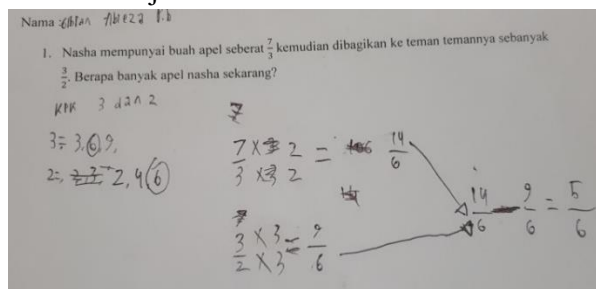 Nama :
1. Nasha mempunyai buah apel seberat 7/3 kemudian dibagikan ke teman temannya sebanyak
3/2. Berapa banyak apel nasha sekarang?
KPK 3 dan 2
3 = 3, 6, 9,
2 = 2, 4, 6
7/3 × 2/2 = 14/6
3/2 × 3/3 = 9/6
14/6 - 9/6 = 5/6